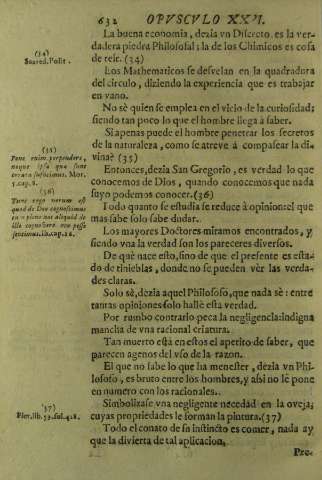 632 OPVSCVLO XXVI.
La buena economia, dezia vn Discreto. es la ver-
dadera piedra Philosofal; la de los Chimicos es cosa
de reir. (34)
(34)
Suared. Polit.
Los Mathematicos se desvelan en la quadratura
del circulo, diziendo la experiencia que es trabajar
en vano.
No sè quien se emplea en el vicio de la curiosidad;
siendo tan poco lo que el hombre llega à saber.
Si apenas puede el hombre penetrar los secretos
de la naturaleza, como se atreve à compasear la di-
vina? (35)
(35)
Pone enim perpendere,
neque ipsa que sunt
terrena sufficimus. Mor.
5. cap. 8.
Entonces, dezia San Gregorio, es verdad lo que
conocemos de Dios, quando conocemos que nada
suyo podemos conocer. (36)
(36)
Tunc ergo verum est
quod de Deo cognoscimus
cum plene nos aliquid de
illo cognoscere non posse
sentimus. lib. cap. 28.
Todo quanto se estudia se reduce à opinion: el que
mas sabe solo sabe dudar.
Los mayores Doctores miramos encontrados, y
siendo vna la verdad son los pareceres diversos.
De què nace esto, sino de que el presente es esta-
do de tinieblas, donde no se pueden vèr las verda-
des claras.
Solo sè, dezia aquel Philosofo, que nada sè: entre
tantas opiniones solo hallè esta verdad.
Por rumbo contrario peca la negligencia: indigna
mancha de vna racional criatura.
Tan muerto està en estos el aperito de saber, que
parecen agenos del vso de la razon.
El que no sabe lo que ha menester, dezia vn Phi-
losofo, es bruto entre los hombres, y assi no le pone
en numero con los racionales.
Simbolizase vna negligente necedad en la oveja;
cuyas propiedades le forman la pintura. (37)
(37)
Pier. lib. 59. fol. 418.
Todo el conato de su instincto es comer, nada ay
que la divierta de tal aplicacion.
Pro-